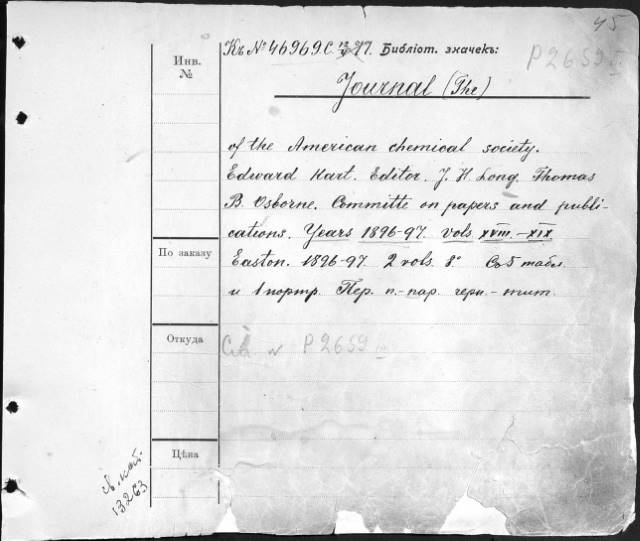 45
Къ № 46969.С. 13/97. Библіот. значекъ:
Р2659
Инв. №
Journal (The)
of the American chemical society.
Edward Hart. Editor. J. H. Long. Thomas
B. Osborne. Committe on papers and publi-
cations. Years 1896-97. vols XVIII.-XIX
По заказу
Easton. 1896-97. 2 vols. 8° Съ 5 табл.
и 1 портр. Пер. п.-пар. черн.-тит.
Откуда
Р2659
Цѣна
св. кат.
13263